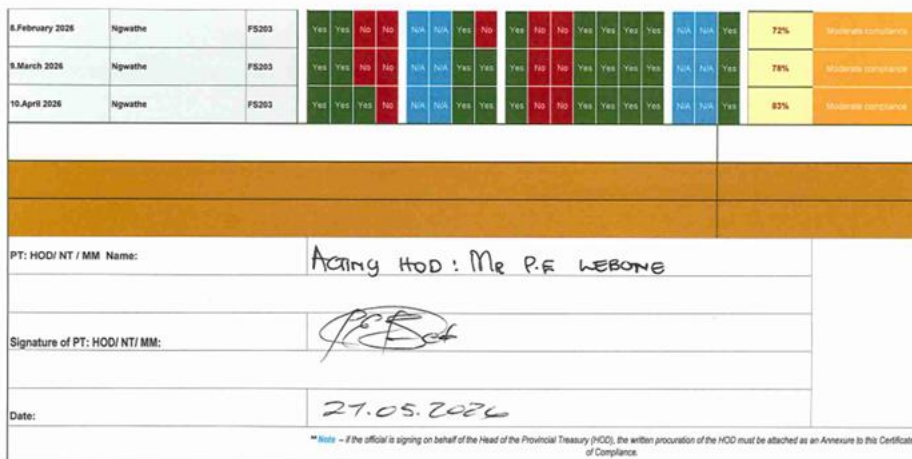 8.February 2026 Ngwathe FS203 Yes Yes No No N/A N/A Yes No Yes No No Yes Yes Yes Yes N/A N/A Yes 72% Moderate compliance
9.March 2026 Ngwathe FS203 Yes Yes No No N/A N/A Yes Yes Yes No No Yes Yes Yes Yes N/A N/A Yes 78% Moderate compliance
10.April 2026 Ngwathe FS203 Yes Yes Yes No N/A N/A Yes Yes Yes No No Yes Yes Yes Yes N/A N/A Yes 83% Moderate compliance
PT: HOD/ NT / MM Name: Acting HOD: Mr P.E LEBONE
Signature of PT: HOD/ NT/ MM:
Date: 27.05.2026
** Note – if the official is signing on behalf of the Head of the Provincial Treasury (HOD), the written procuration of the HOD must be attached as an Annexure to this Certificate
of Compliance.